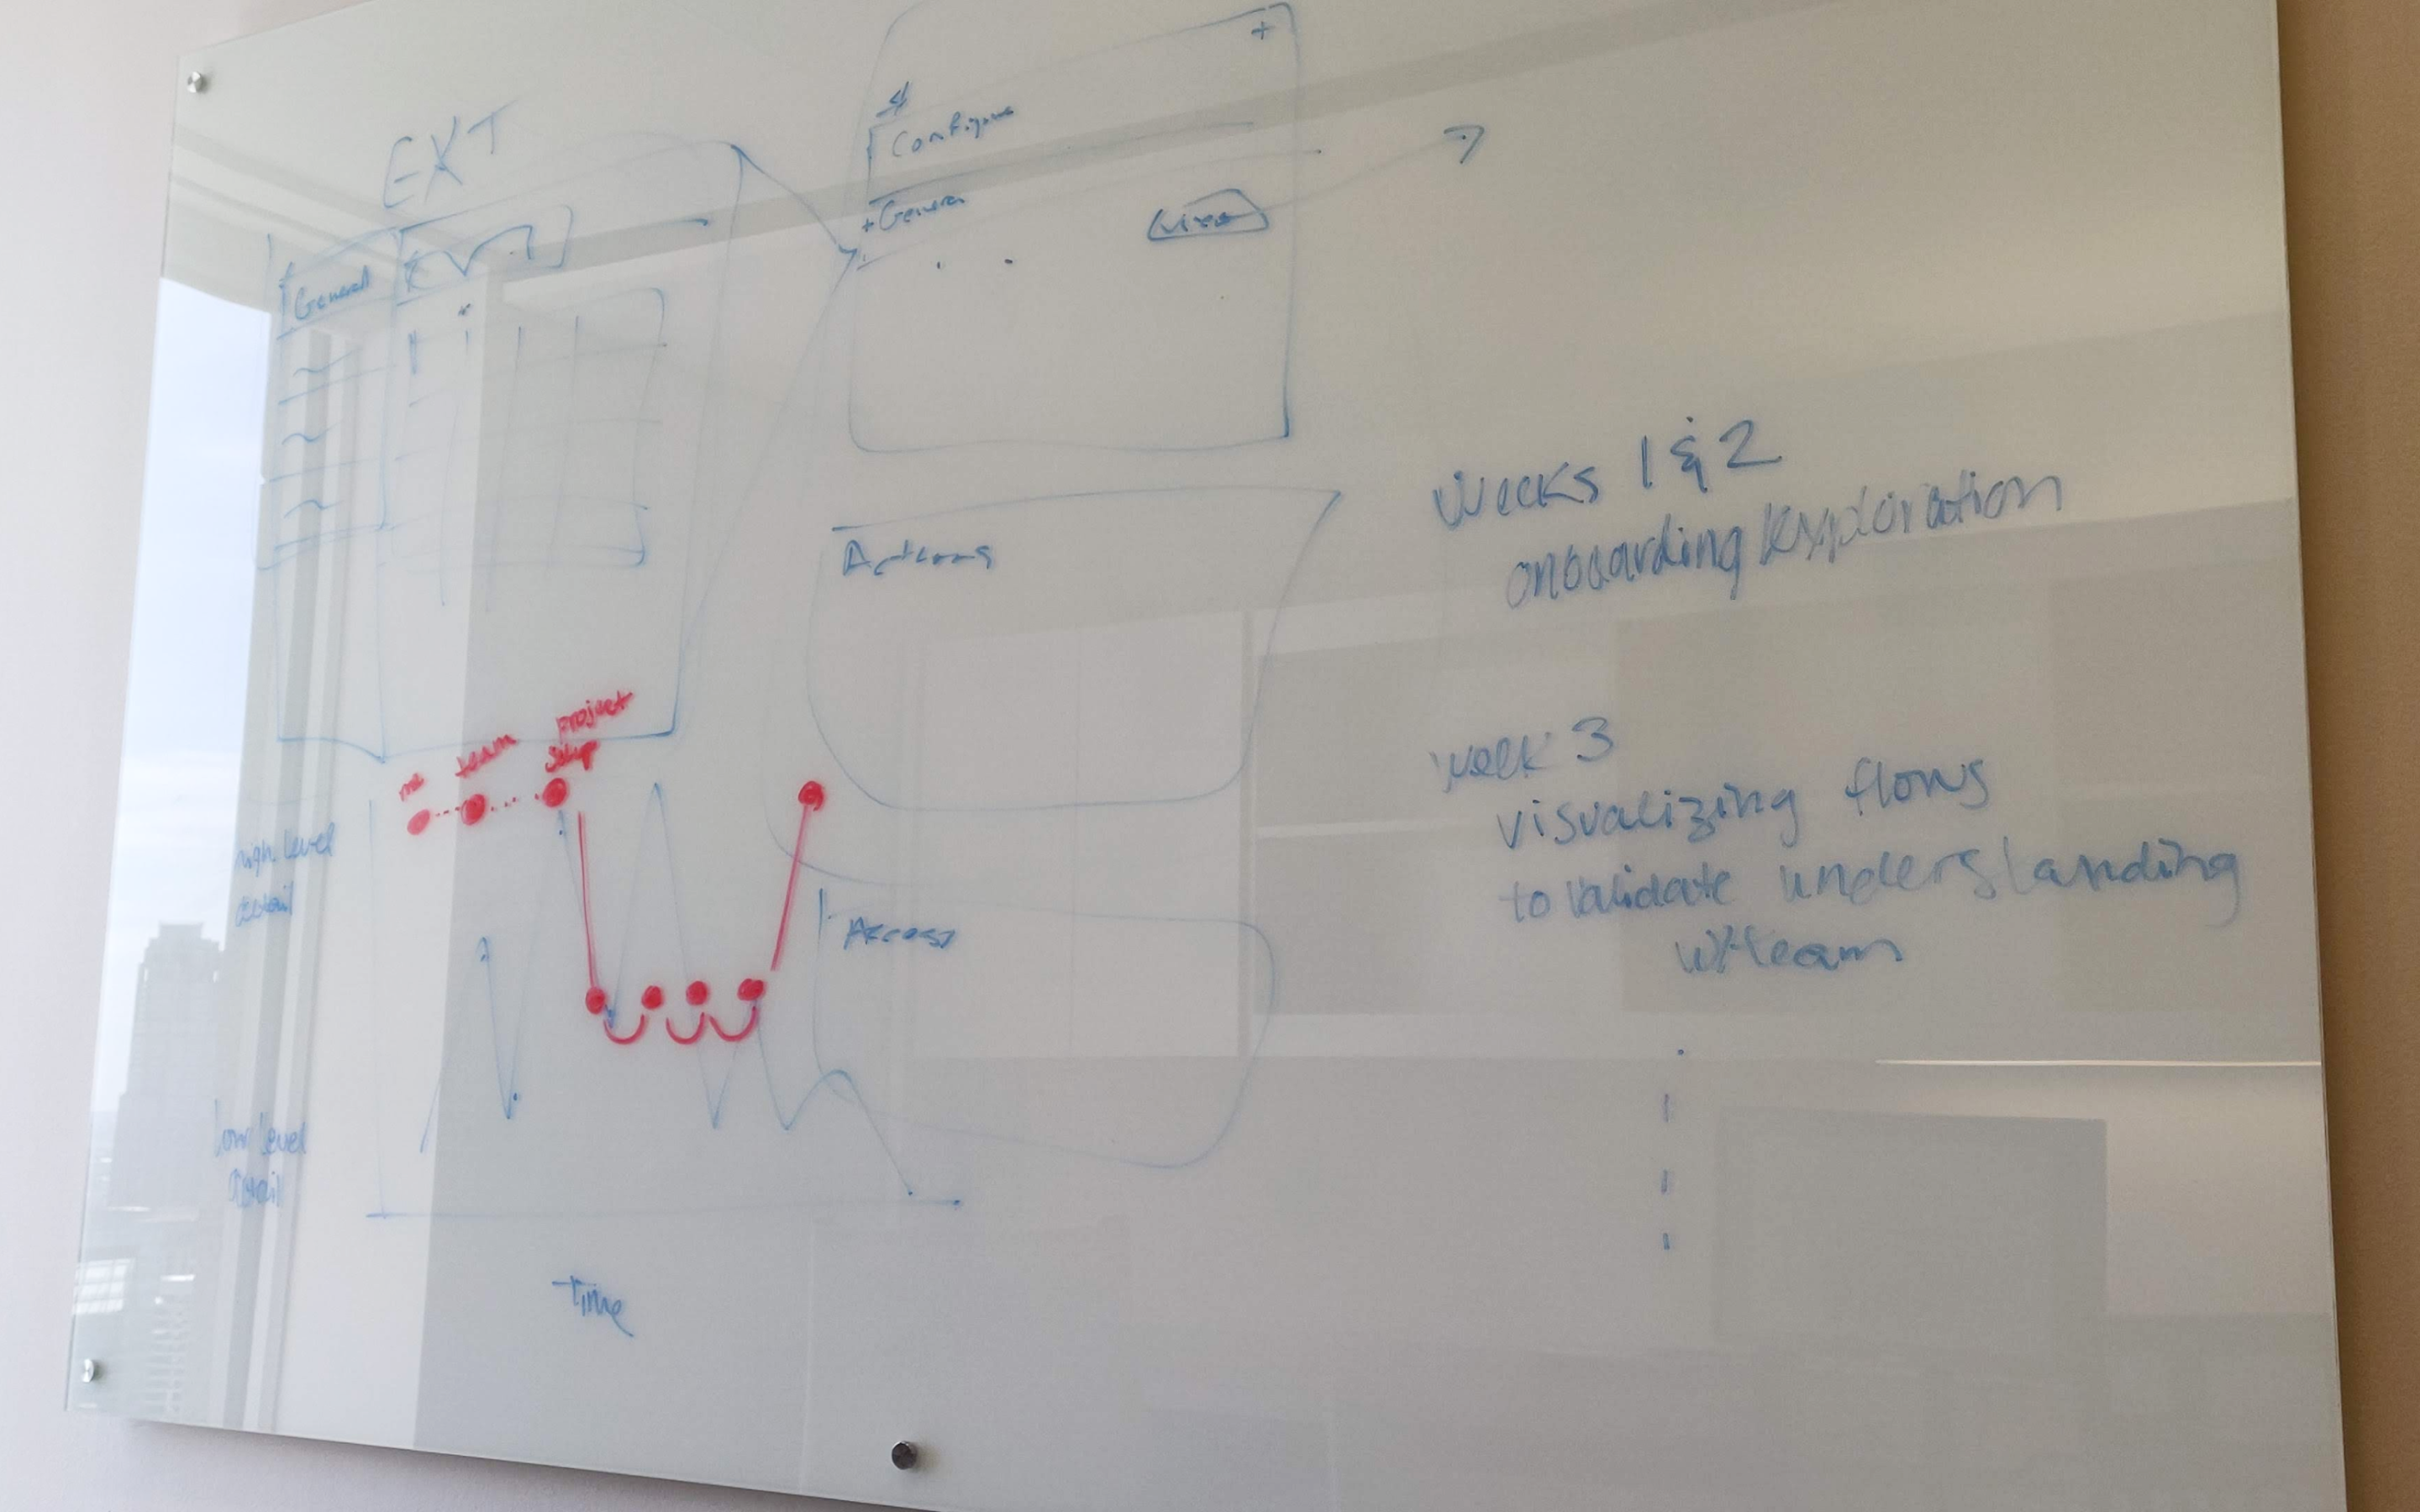 EXT
General
+
Configure
+ General
Actions
Access
me
team
project
setup
high level
detail
low level
Detail
Time
Weeks 1 & 2
onboarding/exploration
week 3
visualizing flows
to validate understanding
w/team